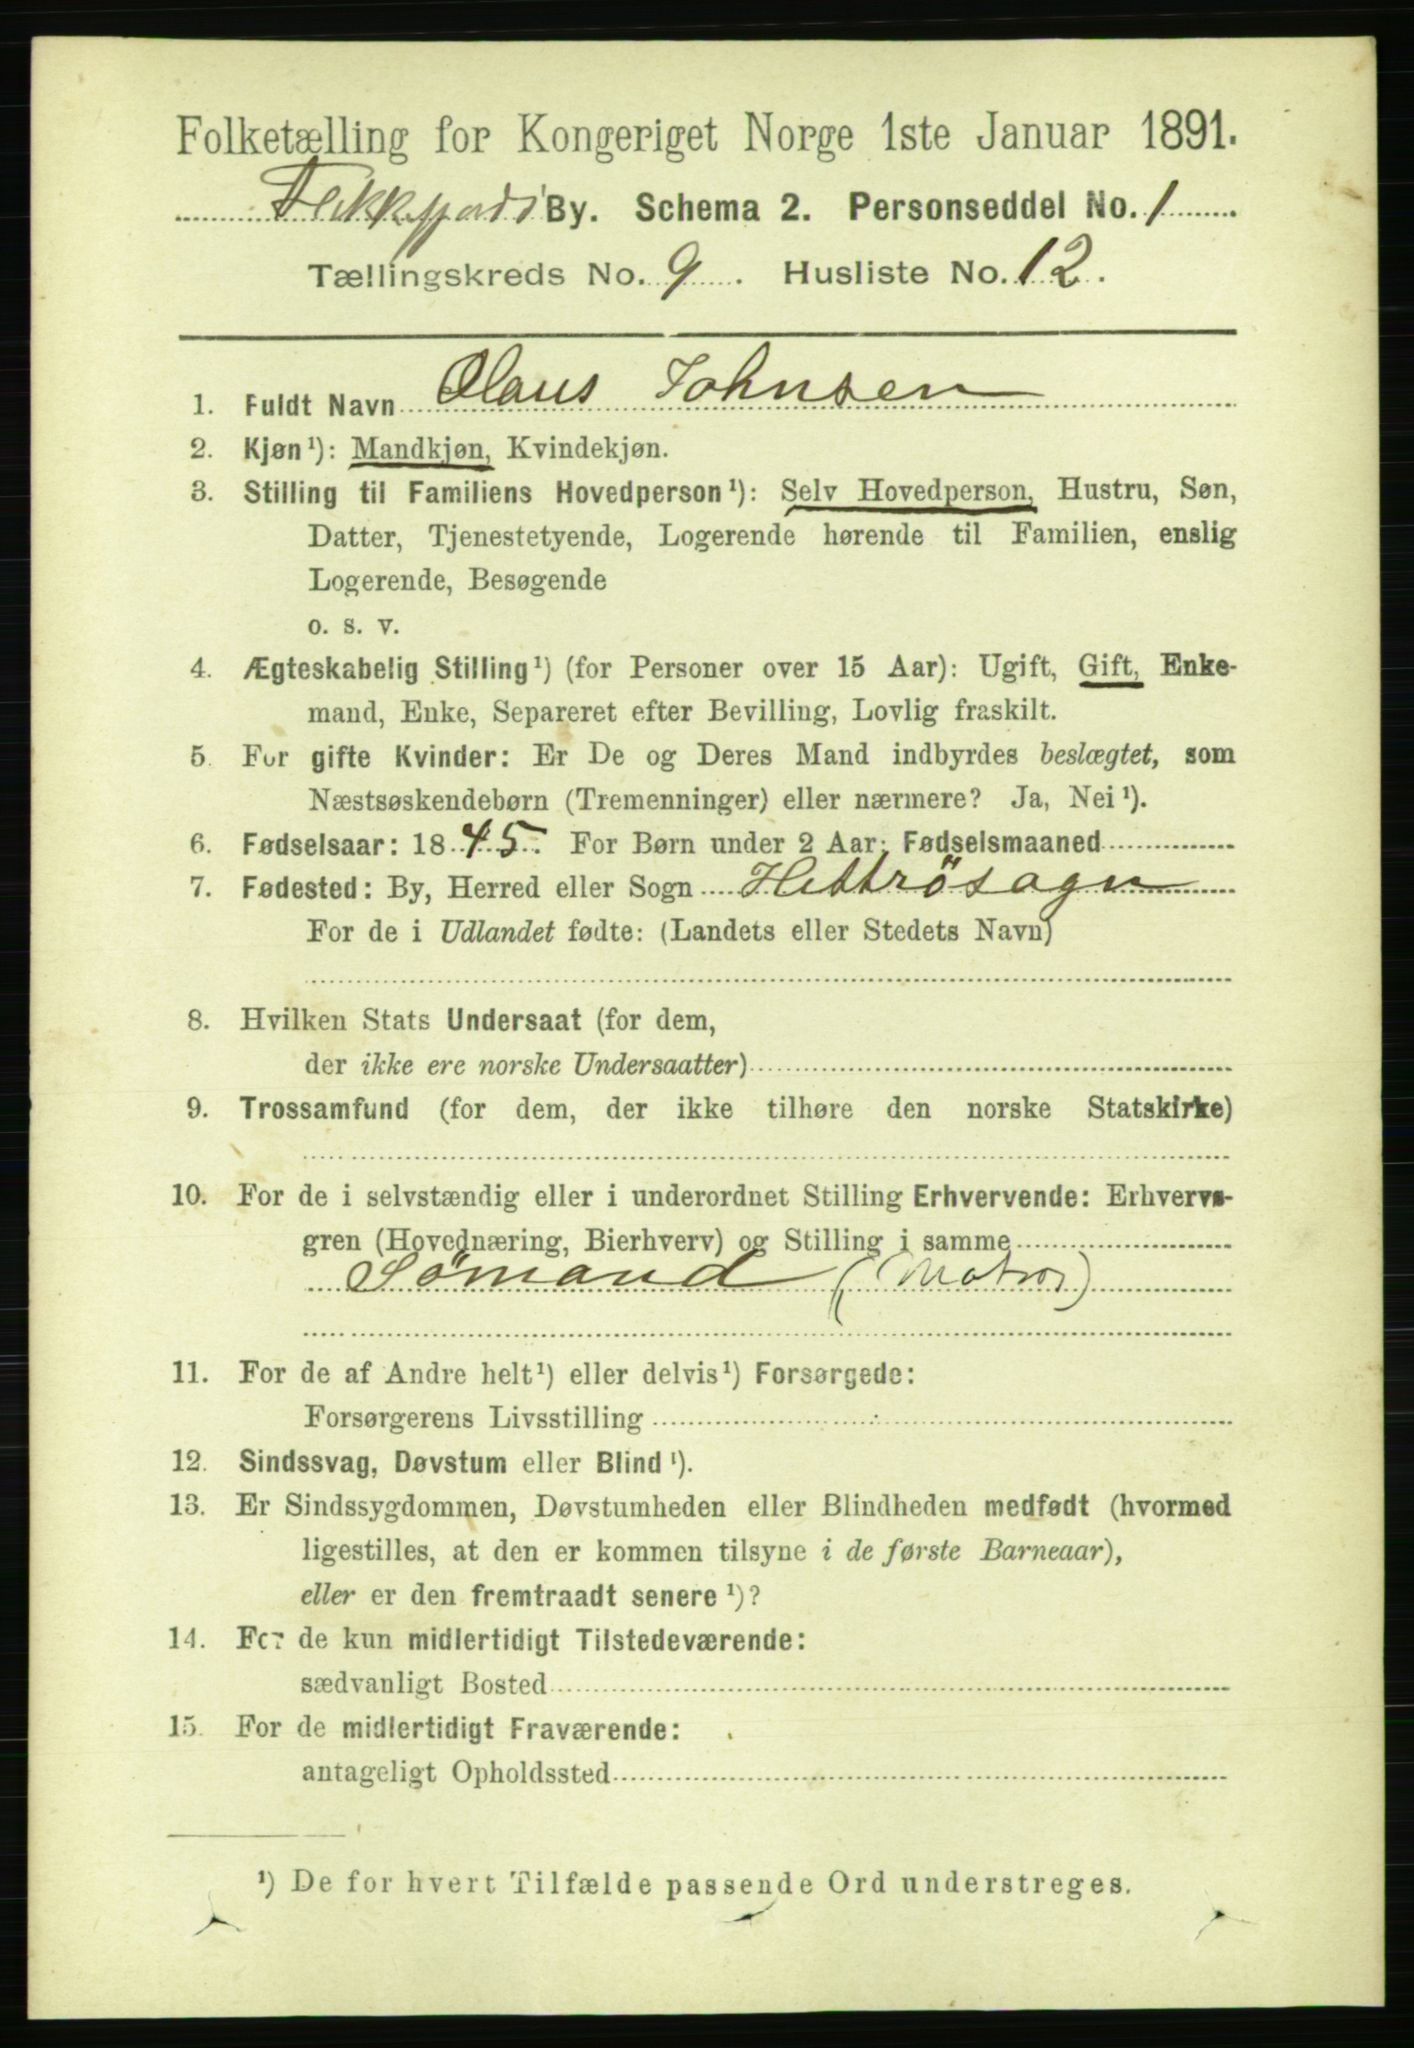 Folketælling for Kongeriget Norge 1ste Januar 1891.
Flekkefjords By. Schema 2. Personseddel No. 1
Tællingskreds No. 9. Husliste No. 12.
1. Fuldt Navn Olaus Johnsen
2. Kjøn¹): Mandkjøn, Kvindekjøn.
3. Stilling til Familiens Hovedperson¹): Selv Hovedperson, Hustru, Søn,
Datter, Tjenestetyende, Logerende hørende til Familien, enslig
Logerende, Besøgende
o. s. v.
4. Ægteskabelig Stilling¹) (for Personer over 15 Aar): Ugift, Gift, Enke-
mand, Enke, Separeret efter Bevilling, Lovlig fraskilt.
5. For gifte Kvinder: Er De og Deres Mand indbyrdes beslægtet, som
Næstsøskendebørn (Tremenninger) eller nærmere? Ja, Nei¹).
6. Fødselsaar: 1845. For Børn under 2 Aar: Fødselsmaaned
7. Fødested: By, Herred eller Sogn Hittrösogn
For de i Udlandet fødte: (Landets eller Stedets Navn)
8. Hvilken Stats Undersaat (for dem,
der ikke ere norske Undersaatter)
9. Trossamfund (for dem, der ikke tilhøre den norske Statskirke)
10. For de i selvstændig eller i underordnet Stilling Erhvervende: Erhvervs-
gren (Hovednæring, Bierhverv) og Stilling i samme
Sömand (Matros)
11. For de af Andre helt¹) eller delvis¹) Forsørgede:
Forsørgerens Livsstilling
12. Sindssvag, Døvstum eller Blind¹).
13. Er Sindssygdommen, Døvstumheden eller Blindheden medfødt (hvormed
ligestilles, at den er kommen tilsyne i de første Barneaar),
eller er den fremtraadt senere¹)?
14. For de kun midlertidigt Tilstedeværende:
sædvanligt Bosted
15. For de midlertidigt Fraværende:
antageligt Opholdssted
¹) De for hvert Tilfælde passende Ord understreges.